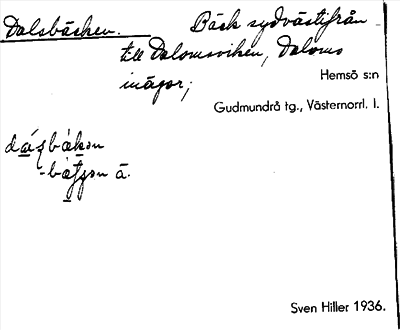 Dalsbäcken. Bäck sydvästifrån
till Dalomsviken, Daloms
inägor;
Hemsö s:n
Gudmundrå tg., Västernorrl. l.
Sven Hiller 1936.